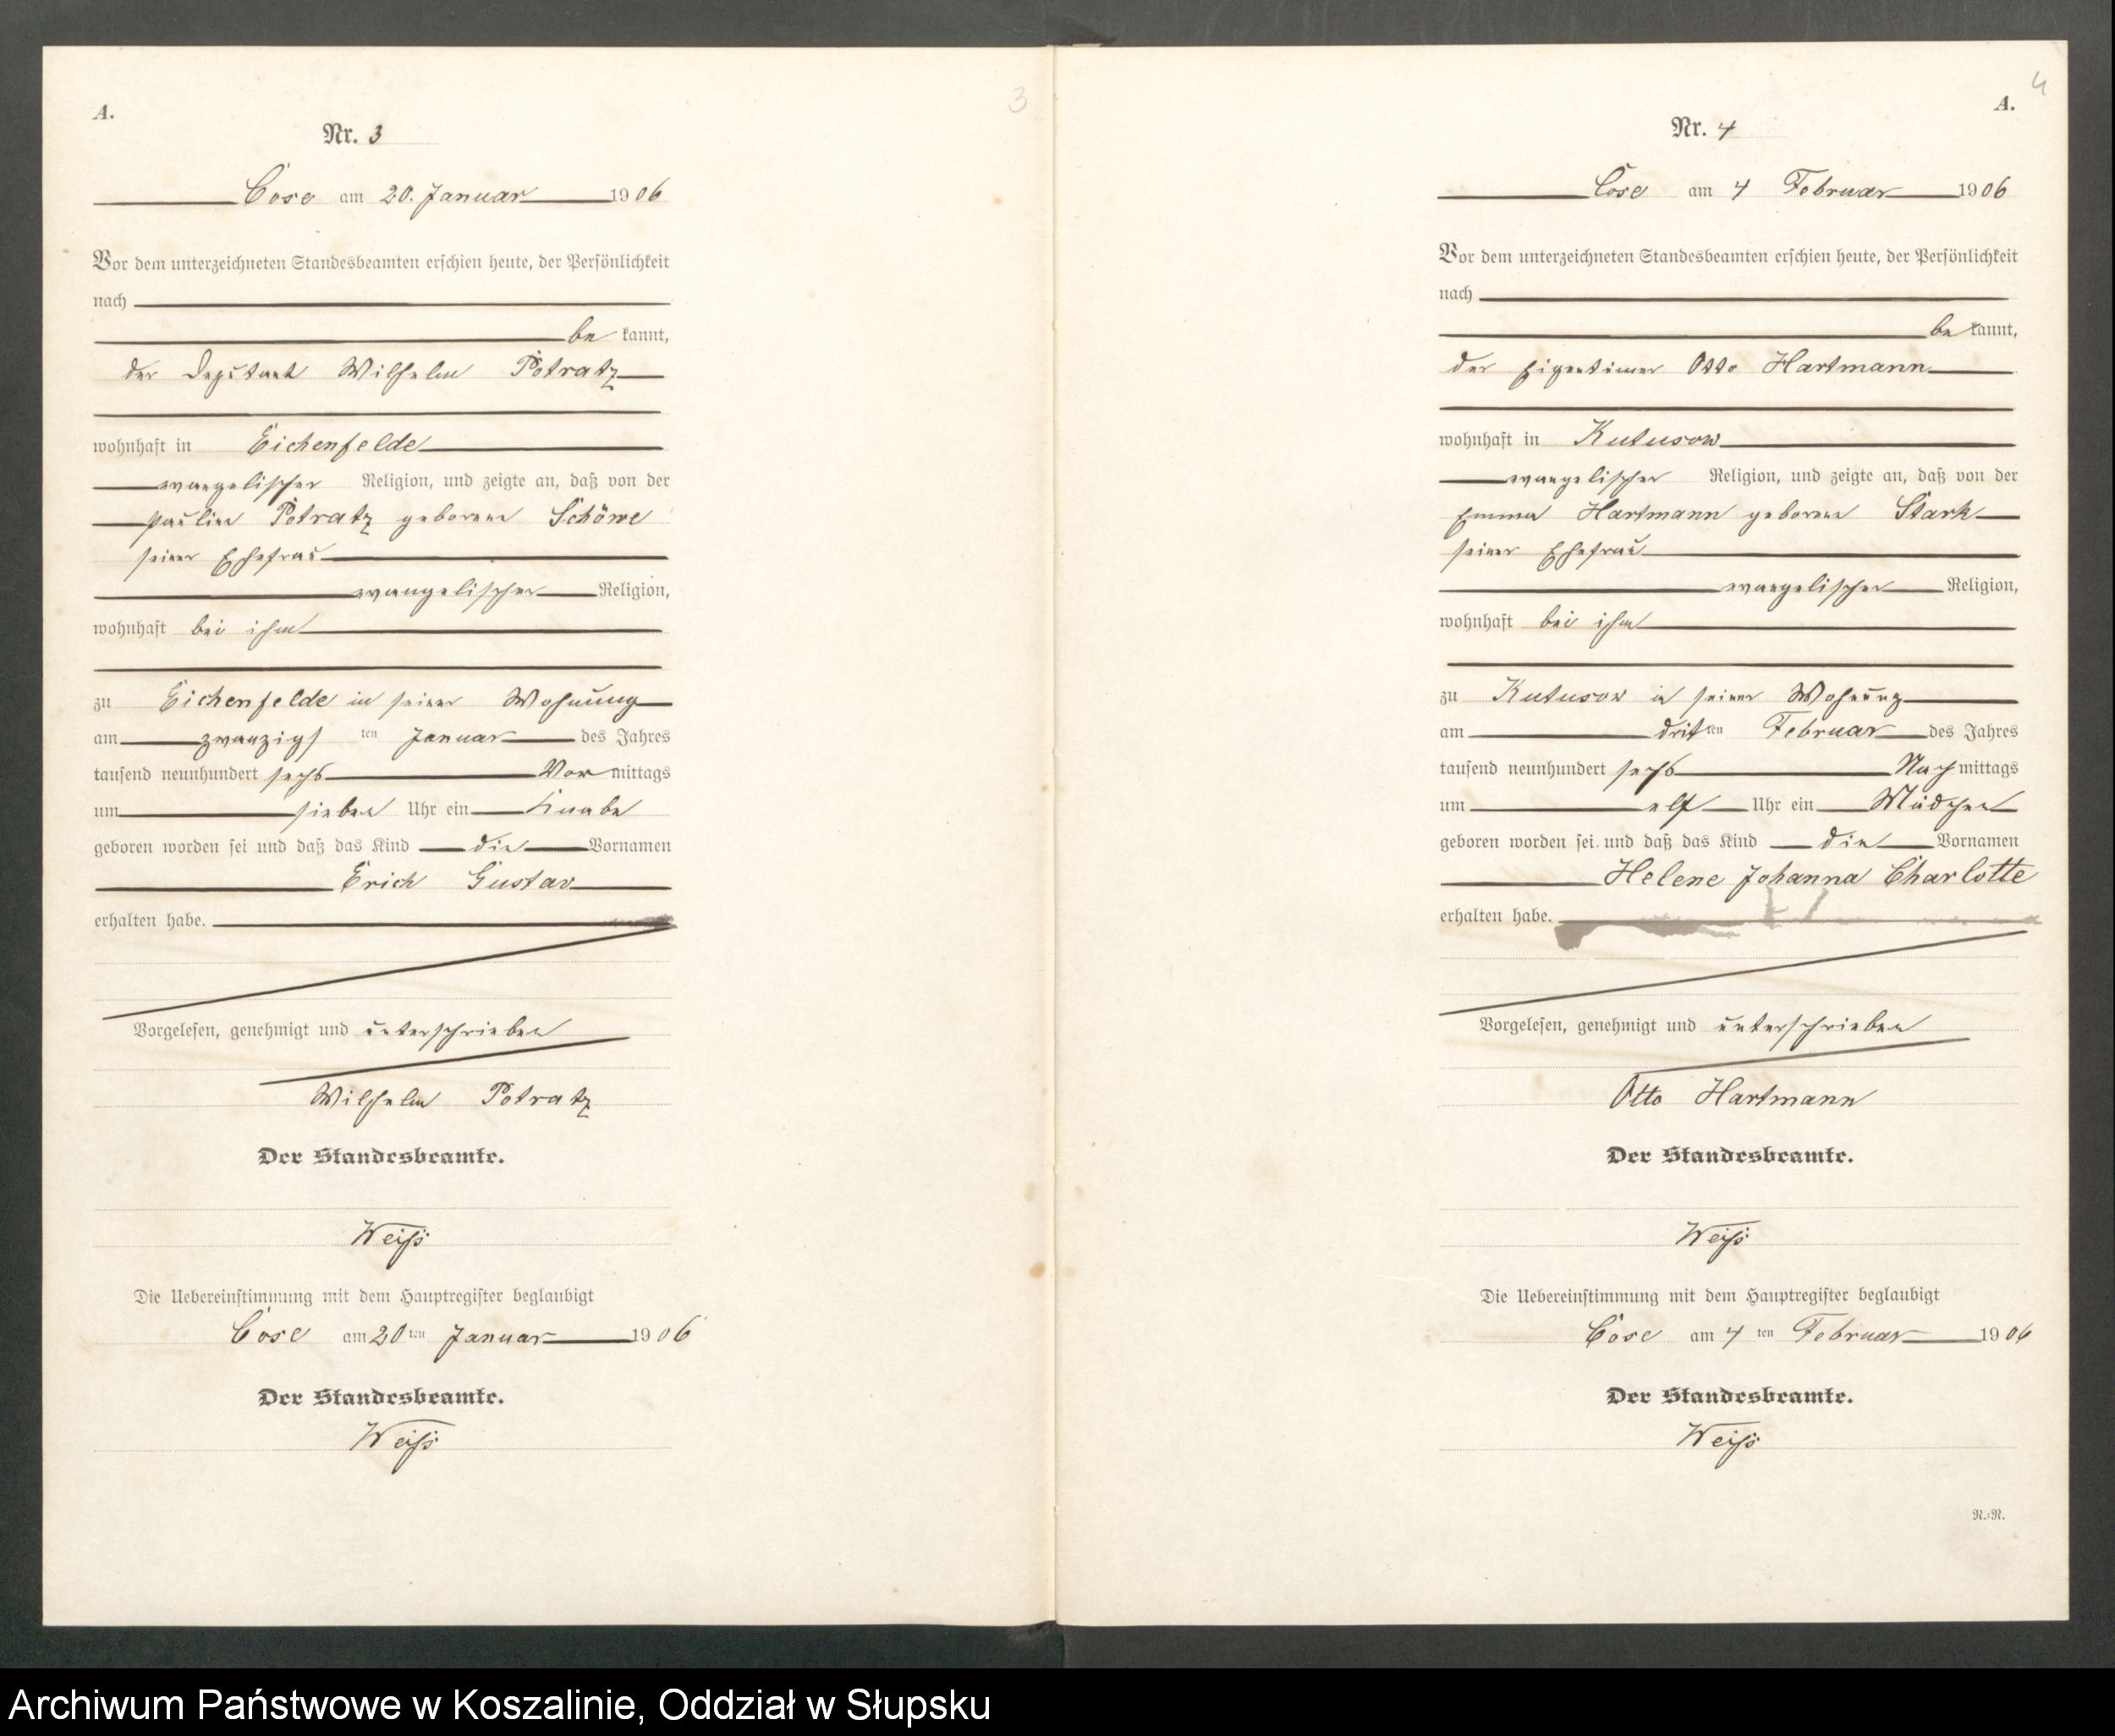 A.
3
Nr. 3
Cose am 20. Januar 1906
Vor dem unterzeichneten Standesbeamten erschien heute, der Persönlichkeit
nach
be kannt,
der Deputant Wilhelm Potratz
wohnhaft in Eichenfelde
evangelischer Religion, und zeigte an, daß von der
Pauline Potratz geborene Schöwe
seiner Ehefrau
evangelischer Religion,
wohnhaft bei ihm
zu Eichenfelde in seiner Wohnung
am zwanzigsten Januar des Jahres
tausend neunhundert sechs Vormittags
um sieben Uhr ein Knabe
geboren worden sei und daß das Kind die Vornamen
Erich Gustav
erhalten habe.
Vorgelesen, genehmigt und unterschrieben
Wilhelm Potratz
Der Standesbeamte.
Weiß
Die Uebereinstimmung mit dem Hauptregister beglaubigt
Cose am 20ten Januar 1906
Der Standesbeamte.
Weiß
4
A.
Nr. 4
Cose am 4 Februar 1906
Vor dem unterzeichneten Standesbeamten erschien heute, der Persönlichkeit
nach
be kannt,
der Eigentümer Otto Hartmann
wohnhaft in Kutusow
evangelischer Religion, und zeigte an, daß von der
Emma Hartmann geborene Stark
seiner Ehefrau
evangelischer Religion,
wohnhaft bei ihm
zu Kutusow in seiner Wohnung
am dritten Februar des Jahres
tausend neunhundert sechs Nachmittags
um elf Uhr ein Mädchen
geboren worden sei und daß das Kind die Vornamen
Helene Johanna Charlotte
erhalten habe.
Vorgelesen, genehmigt und unterschrieben
Otto Hartmann
Der Standesbeamte.
Weiß
Die Uebereinstimmung mit dem Hauptregister beglaubigt
Cose am 4ten Februar 1906
Der Standesbeamte.
Weiß
N.=N.
Archiwum Państwowe w Koszalinie, Oddział w Słupsku